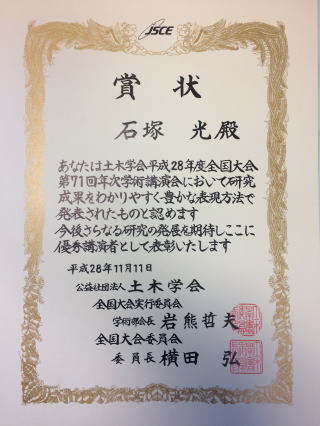 JSCE
賞状
石塚 光殿
あなたは土木学会平成28年度全国大会
第71回年次学術講演会において研究
成果をわかりやすく豊かな表現方法で
発表されたものと認めます
今後さらなる研究の発展を期待しここに
優秀講演者として表彰いたします
平成28年11月11日
公益社団法人 土木学会
全国大会実行委員会
学術部会長 岩熊哲夫
全国大会委員会
委員長 横田 弘